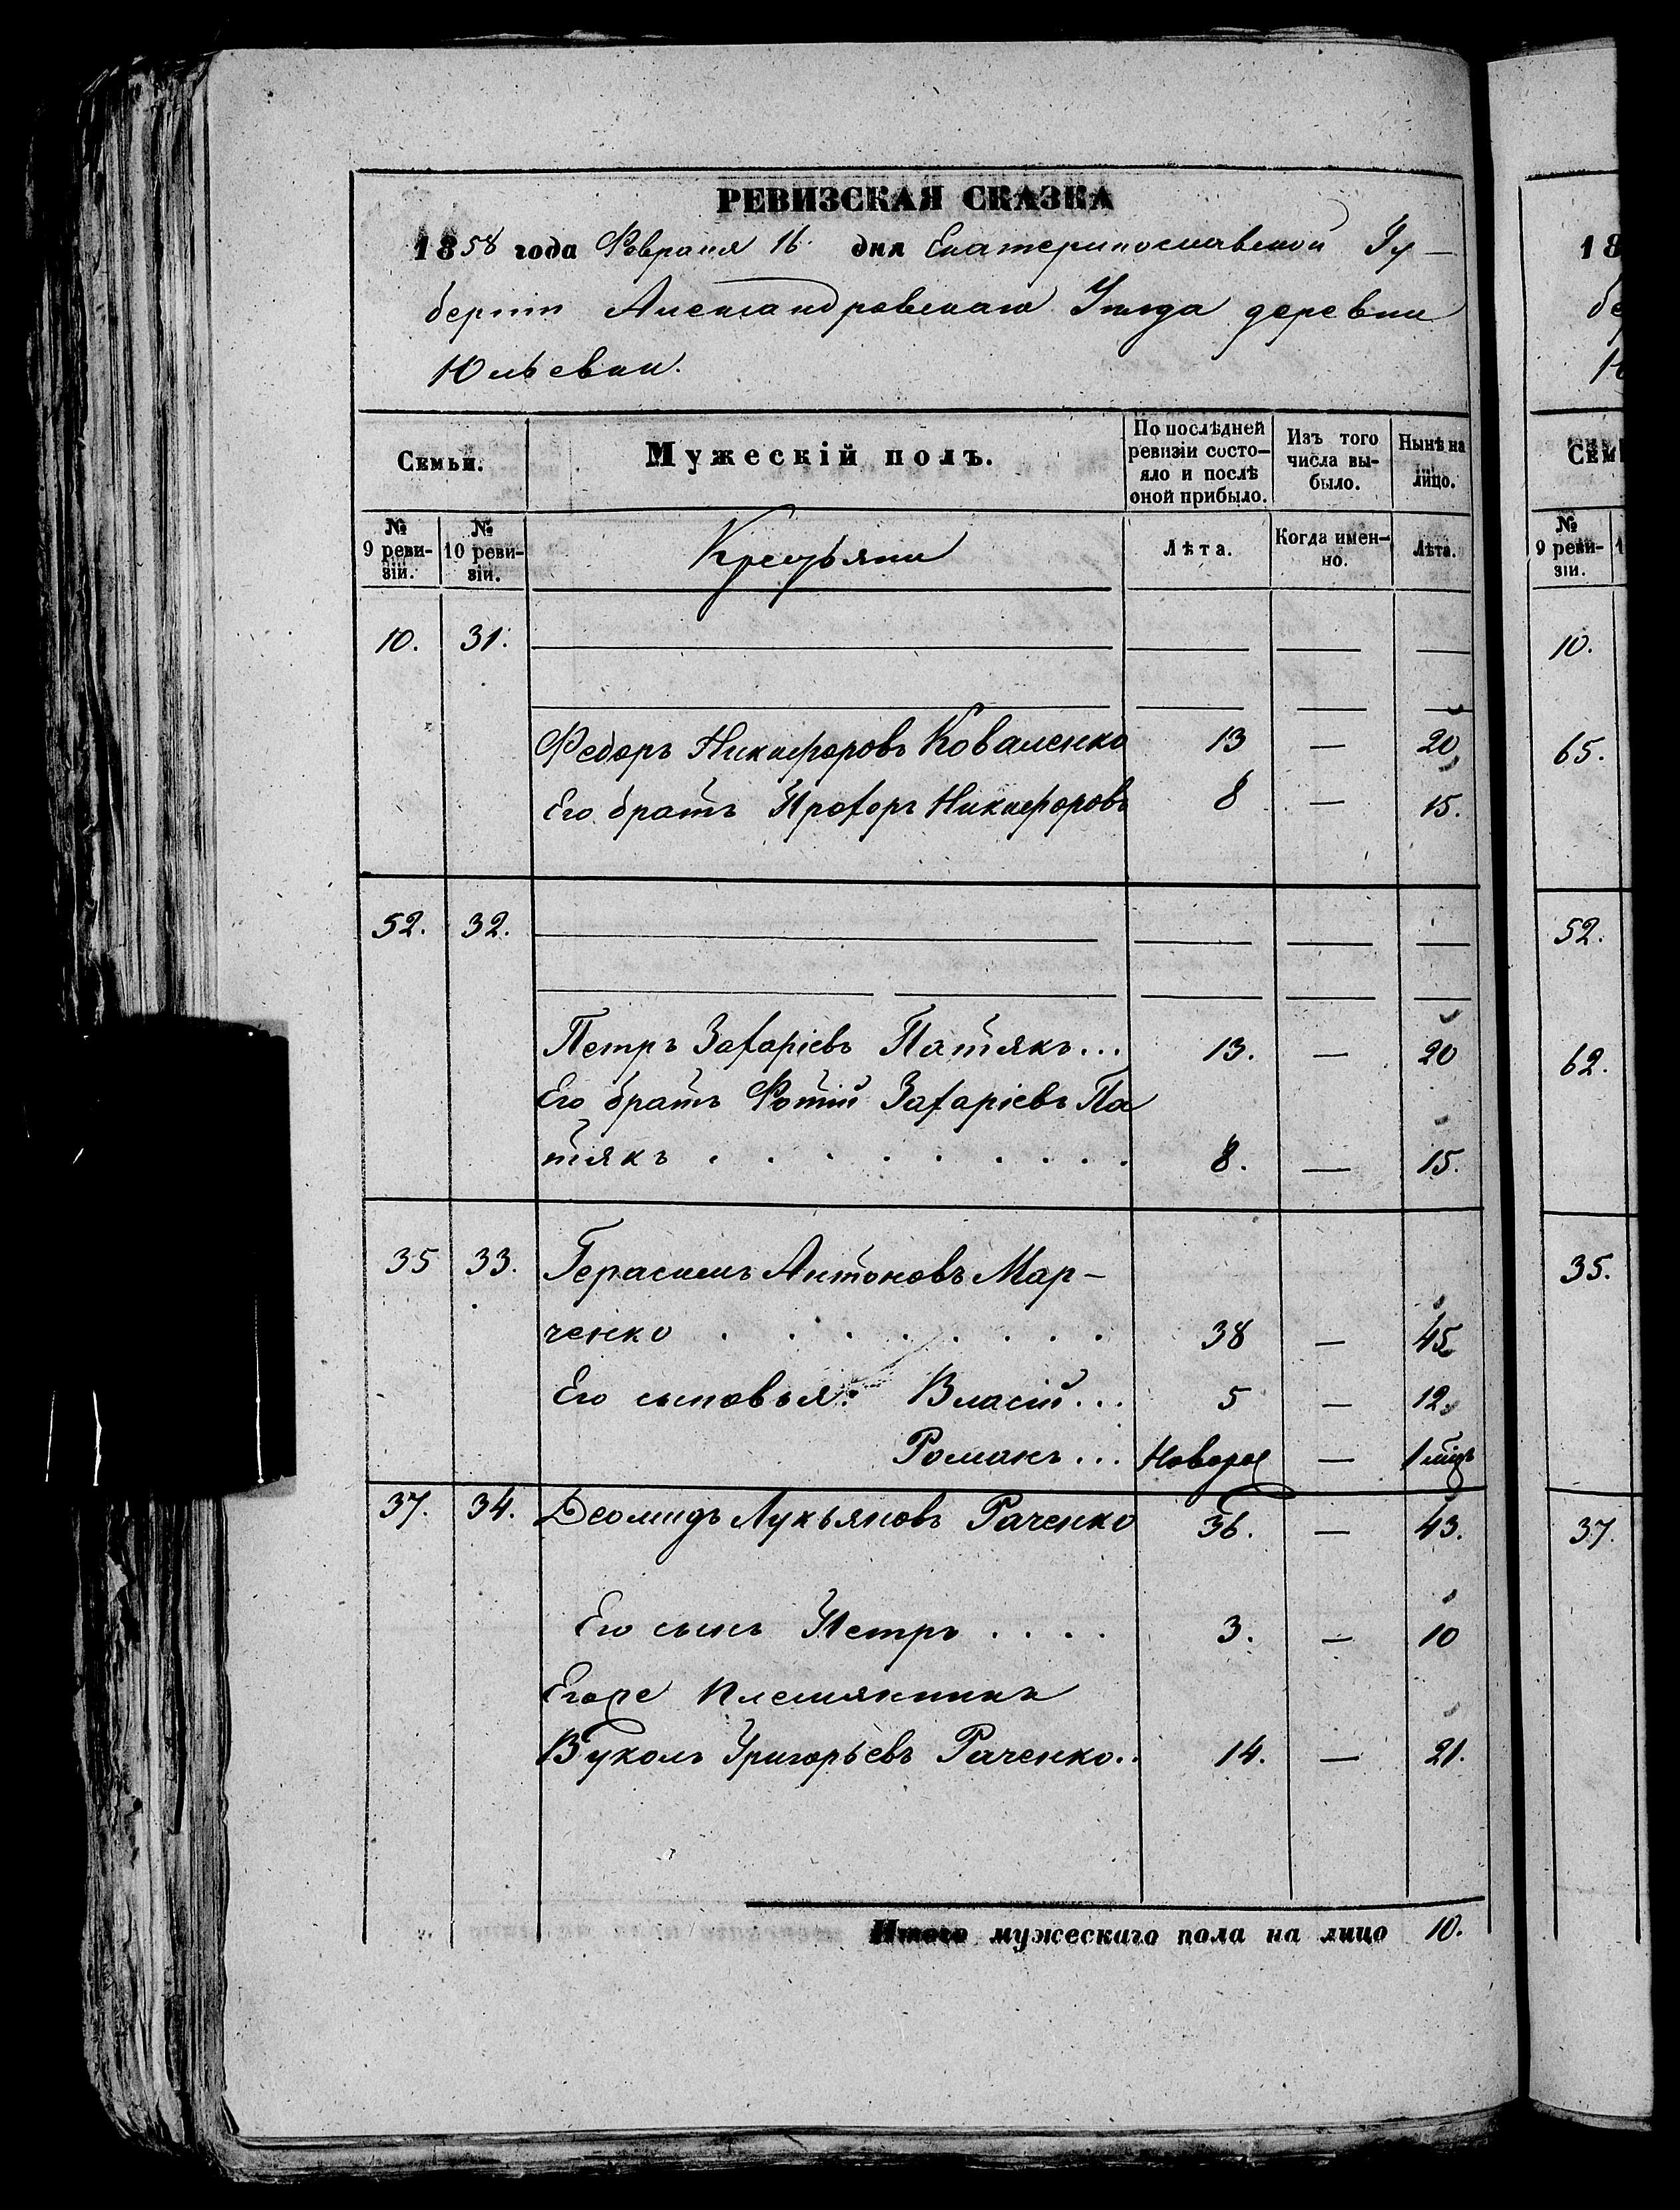 РЕВИЗСКАЯ СКАЗКА
1858 года Февраля 16 дня Екатеринославской Гу-
берніи Александровскаго Уѣзда деревни
Юльевки.
Семьи. Мужескій полъ. По послѣдней ревизіи состо-яло и послѣ оной прибыло. Изъ того числа вы-было. Нынѣ на лицо.
№ 9 реви-зіи. № 10 реви-зіи. Крестьяни Лѣта. Когда имен-но. Лѣта.
10. 31.
Федоръ Никифоровъ Коваленко 13 — 20
Его братъ Прохоръ Никифоровъ 8 — 15.
52. 32.
Петръ Захаріевъ Патякъ... 13. — 20
Его братъ Фотій Захаріевъ Па
тякъ . . . . . . . . 8. — 15.
35 33. Герасимъ Антоновъ Мар-
ченко . . . . . . . 38 — 45
Его сыновья: Власій... 5 — 12
Романъ... Новорож —
37. 34. Деомидъ Лукьяновъ Раченко 36. — 43.
Его сынъ Петръ . . . . 3. — 10
Егоже племянникъ
Вуколъ Григорьевъ Раченко.. 14. — 21.
Итого мужескаго пола на лицо 10.
18
бе
Ю
Сем
№ 9 реви-зіи.
10.
65.
52.
62.
35.
37.